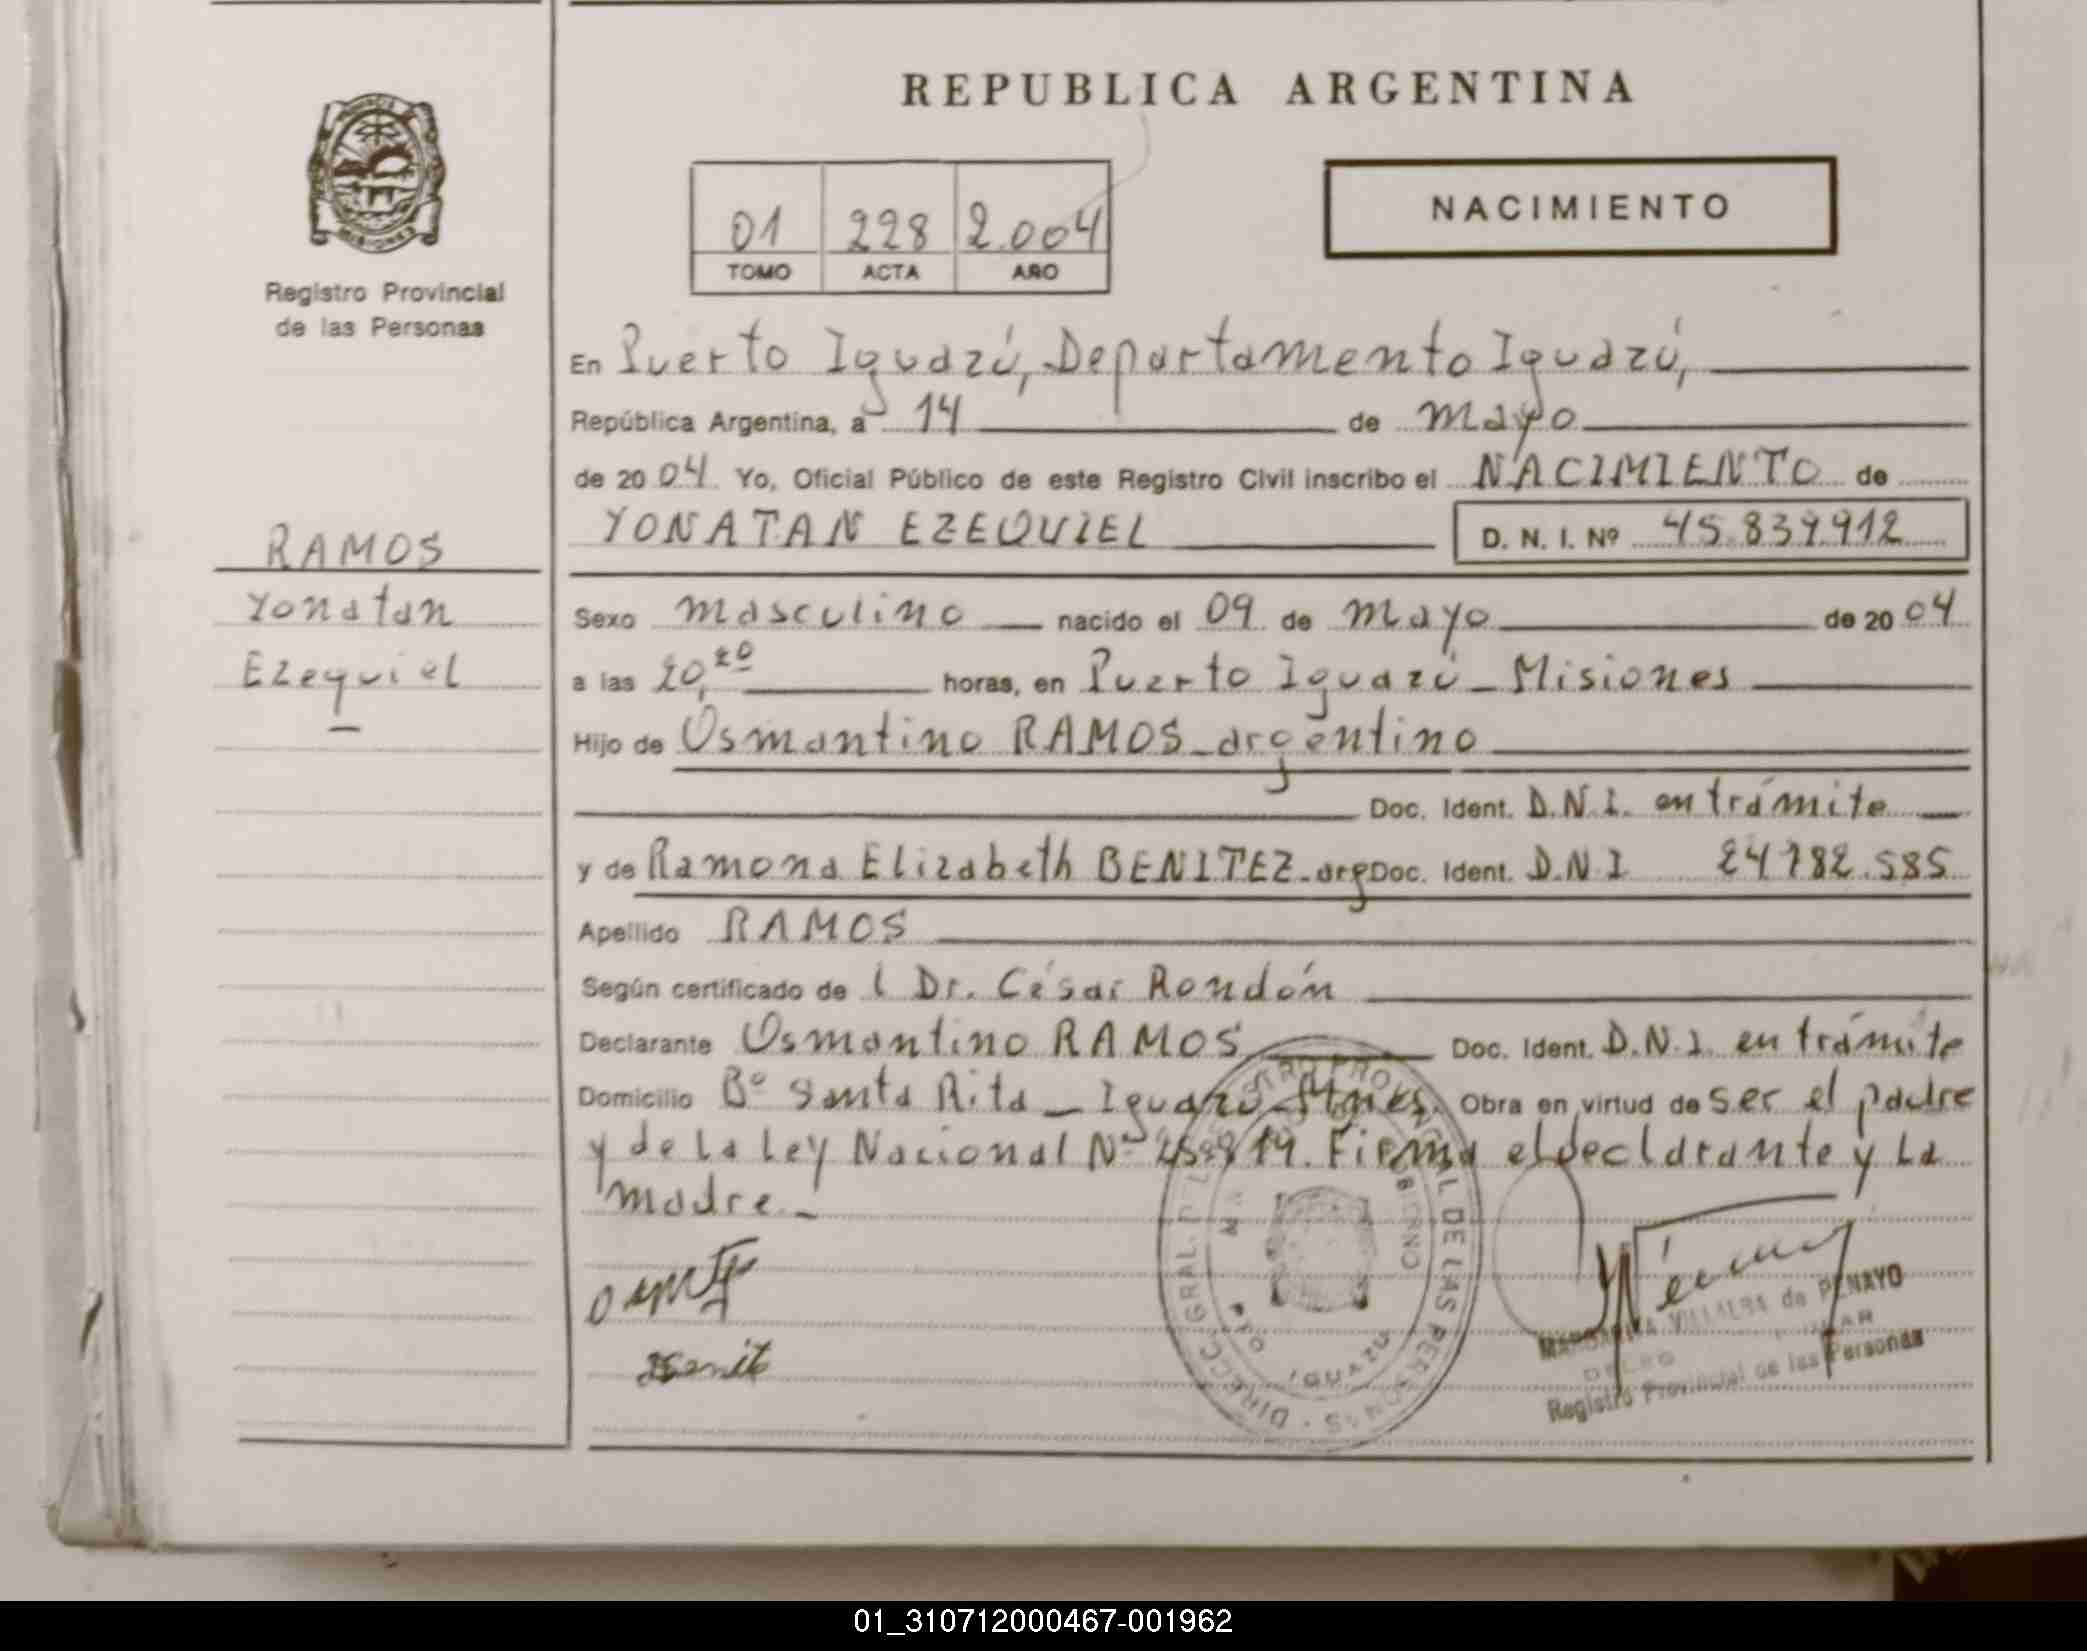 REPUBLICA ARGENTINA
MISIONES
Registro Provincial
de las Personas
01 228 2.004
TOMO ACTA AÑO
NACIMIENTO
En Puerto Iguazú, Departamento Iguazú,
República Argentina, a 14 de mayo
de 2004 Yo, Oficial Público de este Registro Civil inscribo el NACIMIENTO de
YONATAN EZEQUIEL D. N. I. Nº 45.839.912
RAMOS
Yonatan
Ezequiel
Sexo masculino nacido el 09 de mayo de 2004
a las 20,20 horas, en Puerto Iguazú - Misiones
Hijo de Osmantino RAMOS - argentino
Doc. Ident. D.N.I. en trámite
y de Ramona Elizabeth BENITEZ - arg Doc. Ident. D.N.I 24782.585
Apellido RAMOS
Según certificado de l Dr. César Rondón
Declarante Osmantino RAMOS Doc. Ident. D.N.I. en trámite
Domicilio Bº Santa Rita - Iguazú - Mnes. Obra en virtud de ser el padre
y de la Ley Nacional Nº Firma el declarante y la
madre.-
DIRECC. GRAL. DEL REGISTRO PROVINCIAL DE LAS PERSONAS
IGUAZU
MARGARITA VILLALBA de PENAYO
Registro Provincial de las Personas
01_310712000467-001962